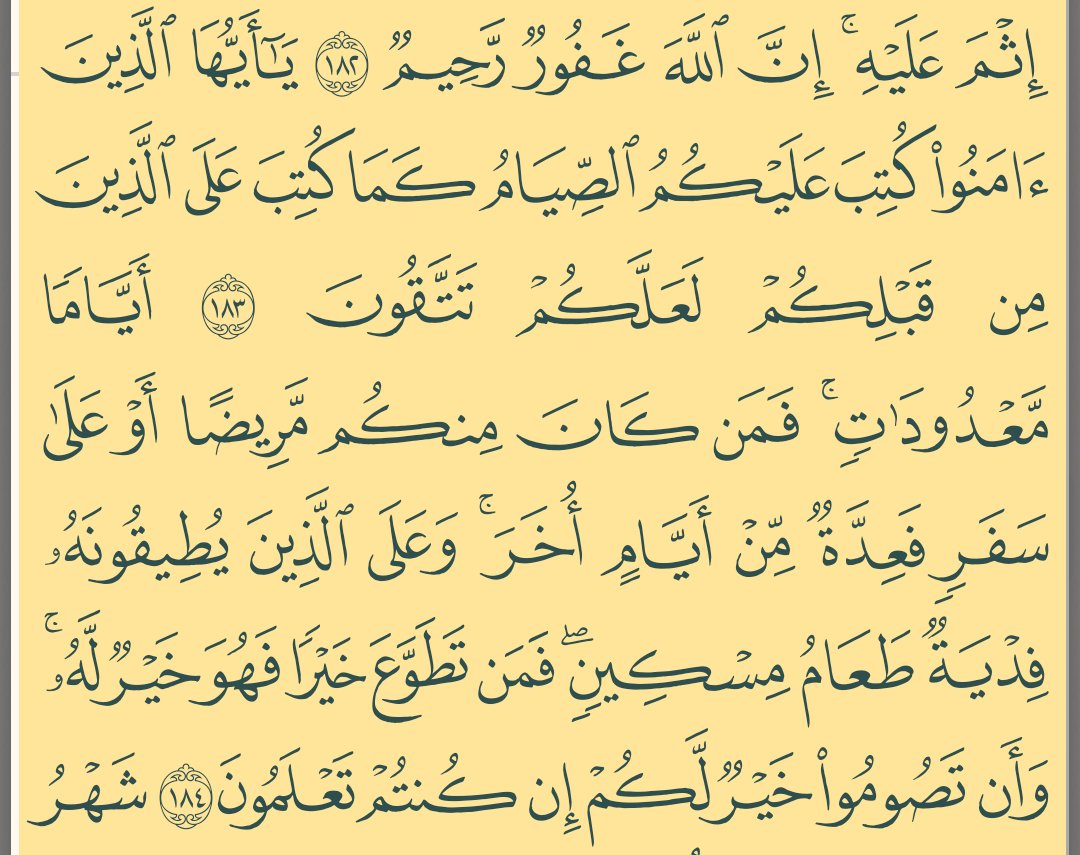 إِثْمَ عَلَيْهِ ۚ إِنَّ ٱللَّهَ غَفُورٌ رَّحِيمٌ ١٨٢ يَـٰٓأَيُّهَا ٱلَّذِينَ
ءَامَنُوا۟ كُتِبَ عَلَيْكُمُ ٱلصِّيَامُ كَمَا كُتِبَ عَلَى ٱلَّذِينَ
مِن قَبْلِكُمْ لَعَلَّكُمْ تَتَّقُونَ ١٨٣ أَيَّامًا
مَّعْدُودَٰتٍ ۚ فَمَن كَانَ مِنكُم مَّرِيضًا أَوْ عَلَىٰ
سَفَرٍ فَعِدَّةٌ مِّنْ أَيَّامٍ أُخَرَ ۚ وَعَلَى ٱلَّذِينَ يُطِيقُونَهُۥ
فِدْيَةٌ طَعَامُ مِسْكِينٍ ۖ فَمَن تَطَوَّعَ خَيْرًا فَهُوَ خَيْرٌ لَّهُۥ ۚ
وَأَن تَصُومُوا۟ خَيْرٌ لَّكُمْ إِن كُنتُمْ تَعْلَمُونَ ١٨٤ شَهْرُ